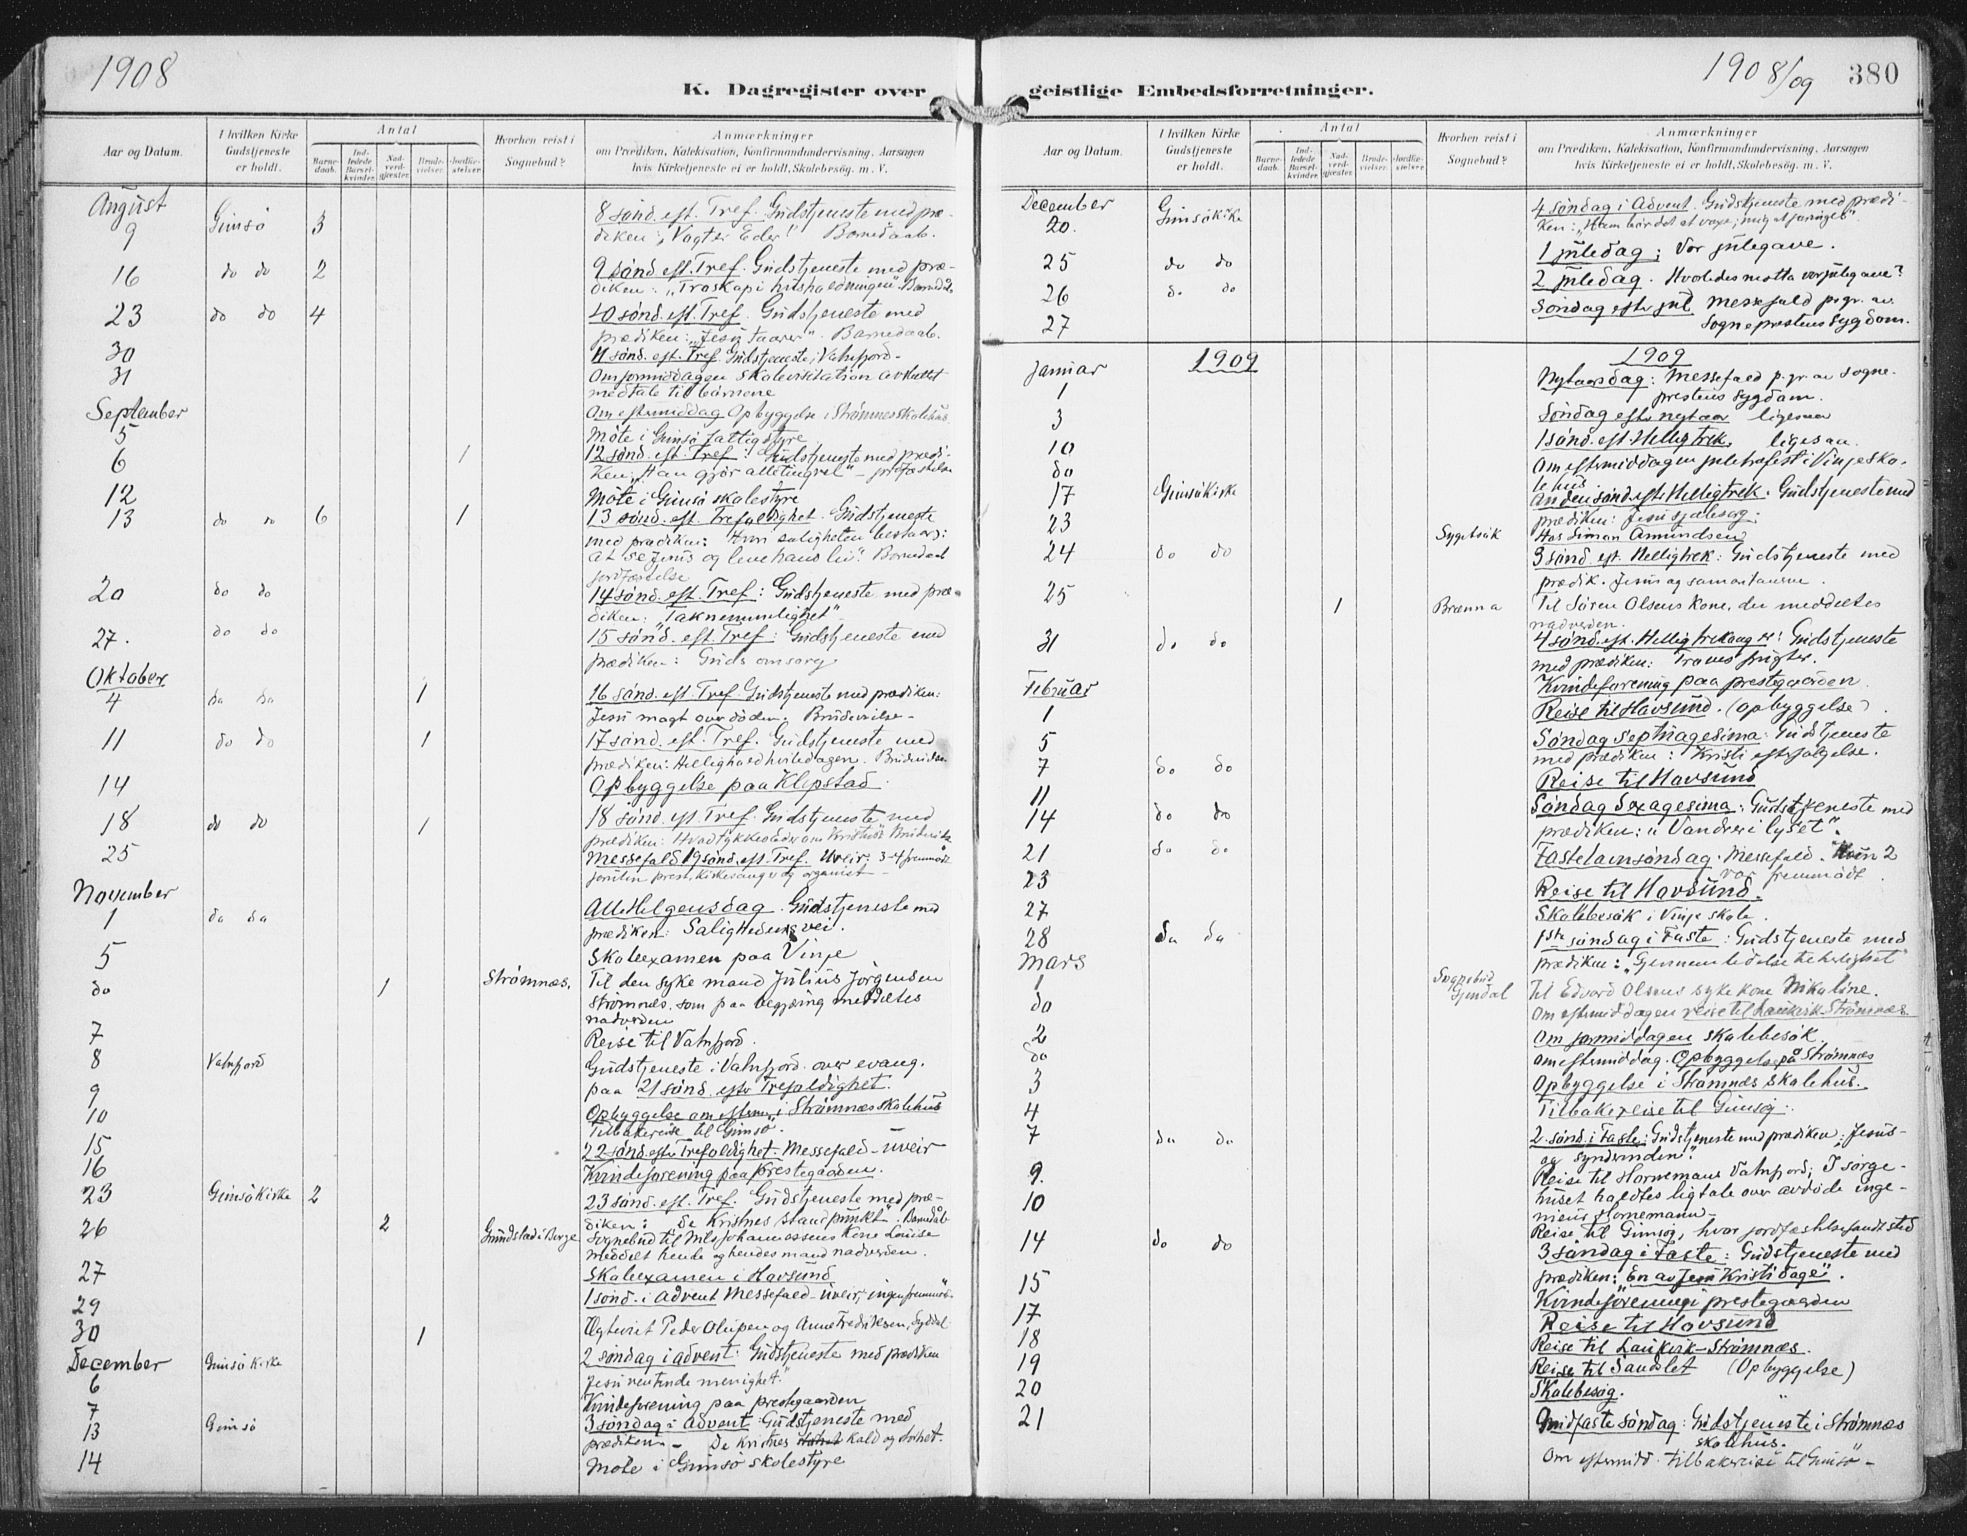 1908
K. Dagregister over
Aar og Datum.
I hvilken Kirke Gudstjeneste er holdt.
Antal
Barnedaab.
Indledede Barselkvinder.
Nadverdgjester.
Brudevielser.
Jordfæstelser.
Hvorhen reist i Sognebud?
Anmærkninger
om Prædiken, Katekisation, Konfirmandundervisning, Aarsagen
hvis Kirketjeneste ei er holdt, Skolebesøg. m. V.
August
9 Gimsö 3 8 sönd. eft. Tref. Gudstjeneste med præ-
diken: "Vogter Eder!" Barnedaab.
16 do do 2 9 sönd eft. Tref. Gudstjeneste med præ-
diken: "Troskap i husholdningen" Barnedåb
23 do do 4 10 sönd. eft. Tref. Gudstjeneste med
prædiken: "Jesu Taarer". Barnedaab.
30 11 sönd. eft. Tref. Gudstjeneste i Vatnfjord-
31 Om formiddagen skolevisitation avsluttet
med tale til börnene
September Om eftermiddag Opbyggelse i Strömnes skolehus
5 Möte i Gimsö fattigstyre
6 1 12 sönd. eft. Tref: Gudstjeneste med prædi-
ken: "Han gjör alle ting vel" - jordfæstelse
12 Möte i Gimsö skolestyre
13 do do 6 1 13 sönd. eft. Trefoldighet. Gudstjeneste
med prædiken: Hvori saligheten bestaar:
at se Jesus og leve hans liv". Barnedaab
jordfæstelse
20 do do 14 sönd. eft. Tref: Gudstjeneste med præ-
diken: "Taknemmelighet"
27. do do 15 sönd. eft. Tref: Gudstjeneste med
prædiken: Guds omsorg
Oktober
4 do do 1 16 sönd. eft. Tref. Gudstjeneste med prædiken:
Jesu magt over döden. Brudevielse-
11 do do 1 17 sönd. eft. Tref. Gudstjeneste med
prædiken: Helligholdhviledagen. Brudevielse
14 Opbyggelse paa Klepstad.
18 do do 1 18 sönd. eft. Tref. Gudstjeneste med
prædiken: Hvad tykkes Eder om Kristus" Brudevielse
25 Messefald 19 sönd. eft. Tref. Uveir; 3-4 fremmöte
foruten prest, kirkesanger og organist-
November
1 do do AlleHelgensdag. Gudstjeneste med
prædiken: Salighedens vei.
5 Skoleexamen paa Vinje
do 1 Strømnæs, Til den syke mand Julius Jörgensen
Strömnes. som paa begjæring meddeltes
nadverden
7 Reise til Vatnfjord.
8 Vatnfjord Gudstjeneste i Vatnfjord. over evang.
paa 21 sönd. efter Trefoldighet.
9 Opbyggelse om efterm. i Strömnæs skolehus
10 Tilbakereise til Gimsö.
15 22 sönd. efter Trefoldighet. Messefald - uveir
16 Kvindeforening paa prestegaarden.
23 Gimsö Kirke 2 23 sönd. eft. Tref. Gudstjeneste med præ-
diken: "De kristnes standpunkt". Barnedåb
26 2 Grundstad i Borge Sognebud til Nils Johannessens Kone Louise
Meddelt hende og hendes mand nadverden.
27 Skoleexamen i Hovsund
29 1 sönd. i Advent Messefald- uveir; ingen fremmöte.
30 1 Egteviet Peder Olupen og Anne Fredriksen, Syddal
December Gimsö Kirke 2 söndag i advent: Gudstjeneste med prædiken
6 Jesu ventende menighet."
7 Kvindeforening paa prestegaarden
13 Gimsö 3 söndag i Advent: Gudstjeneste med
prædiken - De kristnes kald og frihet.
14 Möte i Gimsö skolestyre
geistlige Embedsforretninger.
1908/09
380
Aar og Datum.
I hvilken Kirke Gudstjeneste er holdt.
Antal
Barnedaab.
Indledede Barselkvinder.
Nadverdgjester.
Brudevielser.
Jordfæstelser.
Hvorhen reist i Sognebud?
Anmærkninger
om Prædiken, Katekisation, Konfirmandundervisning, Aarsagen
hvis Kirketjeneste ei er holdt, Skolebesøg. m. V.
December
20. Gimsökirke 4 söndag i Advent. Gudstjeneste med prædi-
ken: "Ham bör det at voxe; mig at forringes"
25 do do 1 juledag; Vor julegave.
26 do do 2 juledag. Hvorledes motta vor julegave?
27 Söndag efter jul Messefald p.gr. av
Sogneprestens sygdom.
1909
Januar 1909
1 Nytaarsdag: Messefald p.gr. av sogne-
prestens sygdom.
3 Söndag efter nytaar ligesaa
10 1 sönd. eft. Hellig trek. ligesaa.
do Om eftermiddagen juletræfest i Vinje sko-
lehus
17 Gimsökirke Anden sönd. efter Hellig trek. Gudstjeneste med
prædiken: Jesu sjælesorg:
23 Sygebesök Hos Simon Amundsen
24 do do 3 sönd eft. Helligtrek: Gudstjeneste med
prædik. Jesus og samaritanerne.
25 1 Brenna Til Sören Olsens kone, der meddeltes
nadverden.
31 do do 4 sönd. eft. Hellig trekonger: Gudstjeneste
med prædiken: Troens frugter.
Februar Kvindeforening paa prestegaarden.
1 Reise til Hovsund. (Opbyggelse).
5 Söndag Septuagesima: Gudstjeneste
7 do do med prædiken: Kristi efterfölgelse.
11 Reise til Hovsund
14 do do Söndag Sexagesima: Gudstjeneste med
prædiken: "Vandrer i lyset".
21 do do Fastelavnsöndag. Messefald. Kun 2
var fremmödt.
23 Reise til Hovsund.
27 Skolebesök i Vinje skole.
28 do do 1ste söndag i Faste: Gudstjeneste med
prædiken: "Gjennem lidelse til herlighet"
Mars
1 Sognebud Gjendal Til Edvard Olsens syke kone Nikoline.
do Om eftermiddagen reise til Laukvik-Strömnæs
2 Om formiddagen skolebesök
do om eftermiddag. Opbyggelse på Strömnæs
3 Opbyggelse i Strömnæs skolehus.
4 Tilbakereise til Gimsö.
7 do do 2. sönd. i Faste: Gudstjeneste med prædiken: "Jesus
og synderinden".
9. Reise til Hornemans Vatnfjord; I sörge-
10 huset holdtes ligtale over avdöde inge-
niör Hornemann-
Reise til Gimsö, hvor jordfæstelse fandt sted
14 do do 3 söndag i Faste: Gudstjeneste med
prædiken: "En av Jesu Kristi dage".
15 Kvindeforening i prestegaarden
17 Reise til Hovsund
18 Reise til Laukvik-Strömnæs.
19 Reise til Sandslet (Opbyggelse)
20 Skolebesög. "
21 Midfaste söndag: Gudstjeneste i Strömnæs
skolehus.
Om eftermidd. tilbakereise til Gimsö-